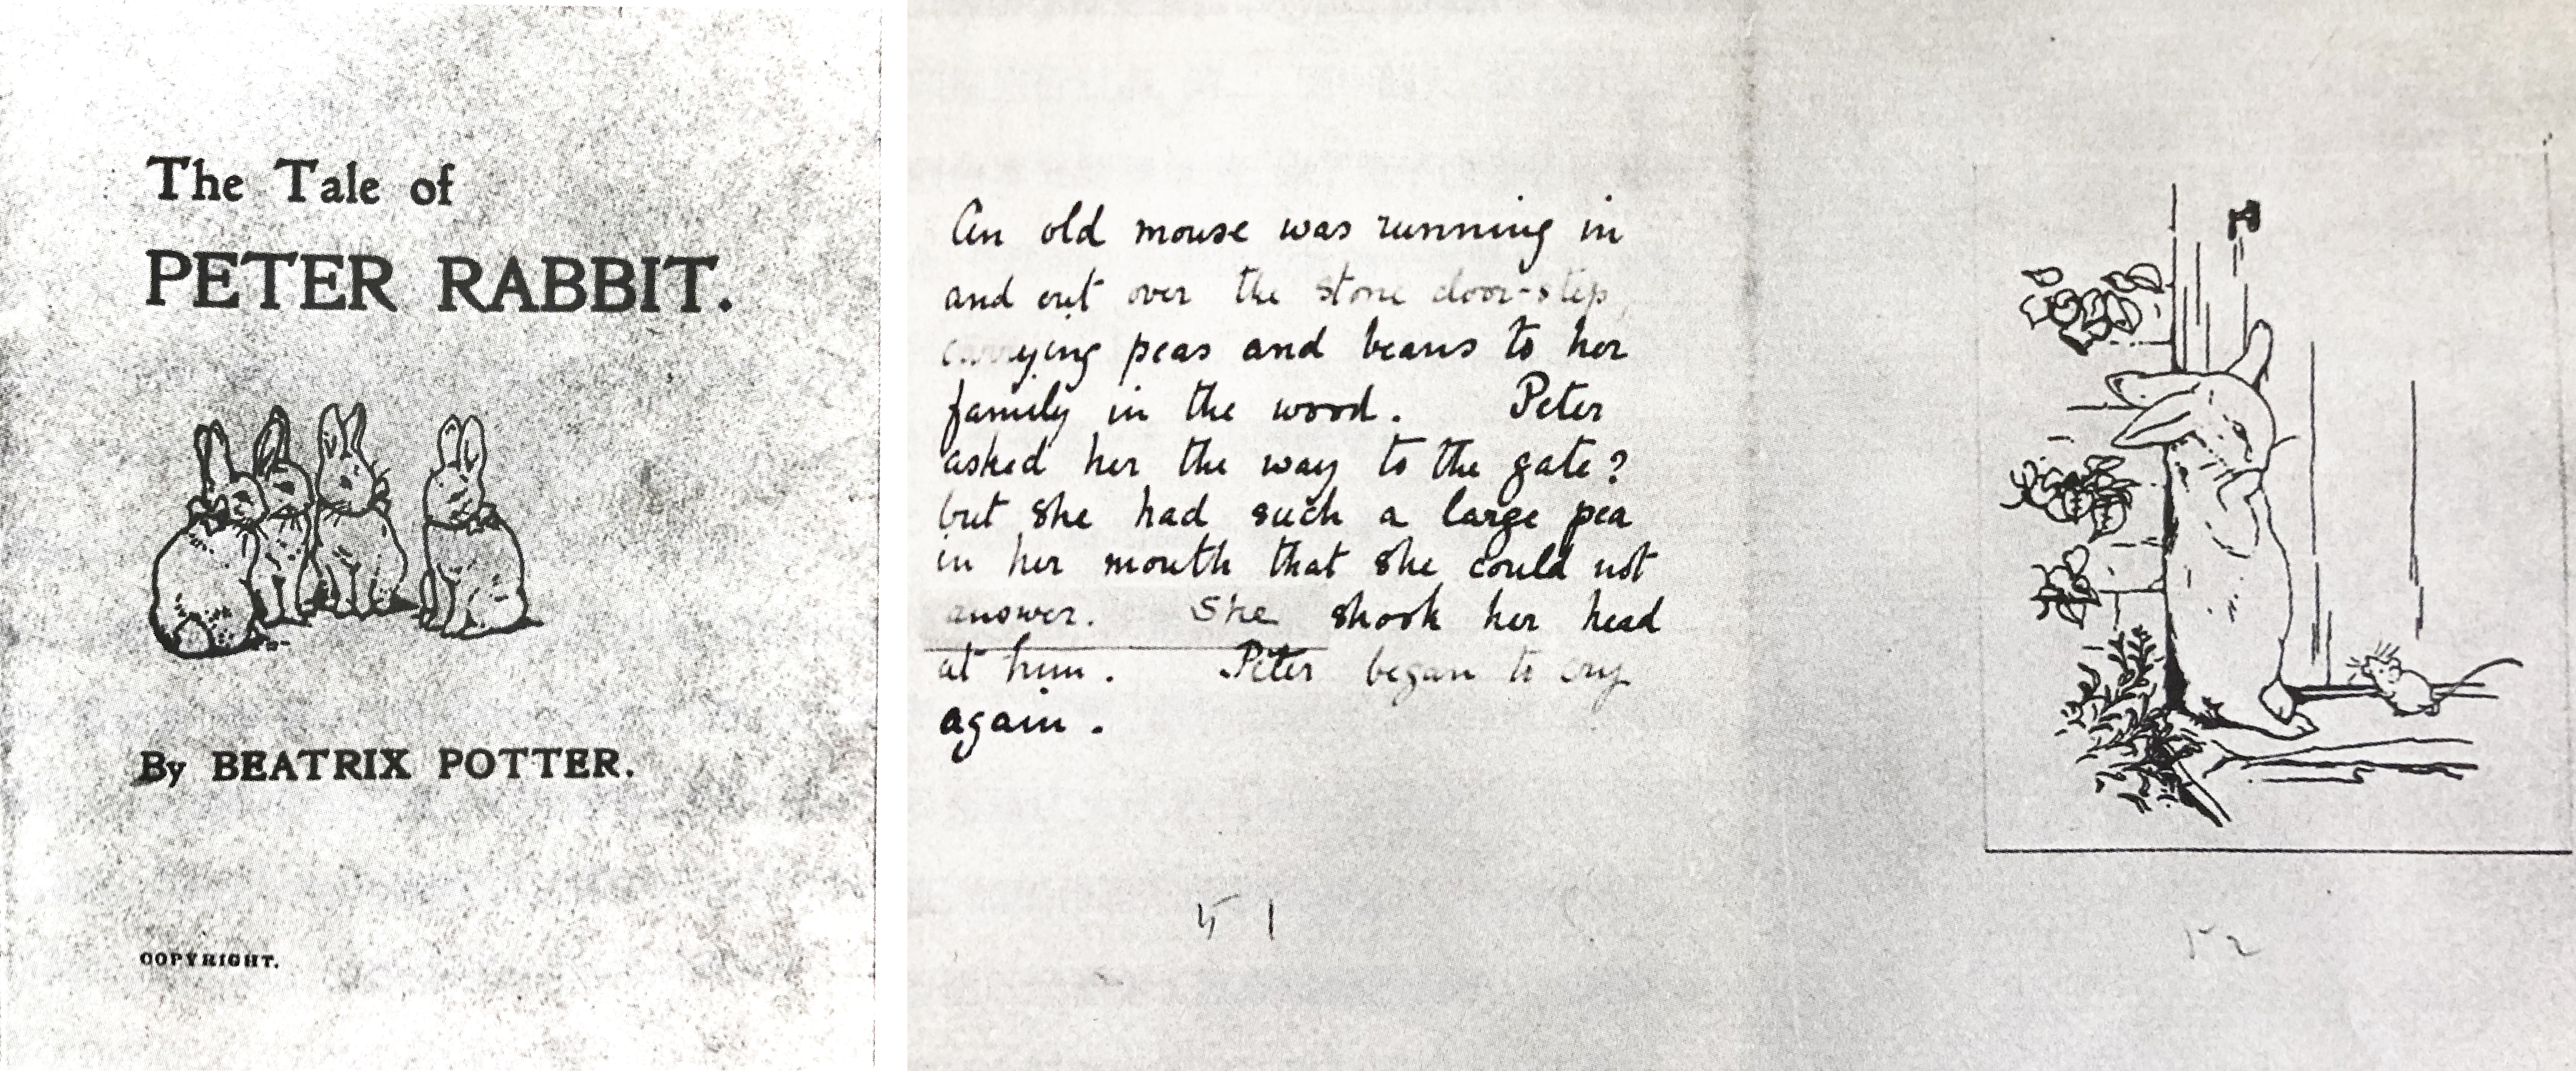 The Tale of
PETER RABBIT.
By BEATRIX POTTER.
COPYRIGHT.
An old mouse was running in
and out over the stone door-step,
carrying peas and beans to her
family in the wood. Peter
asked her the way to the gate?
but she had such a large pea
in her mouth that she could not
answer. She shook her head
at him. Peter began to cry
again.
51
52